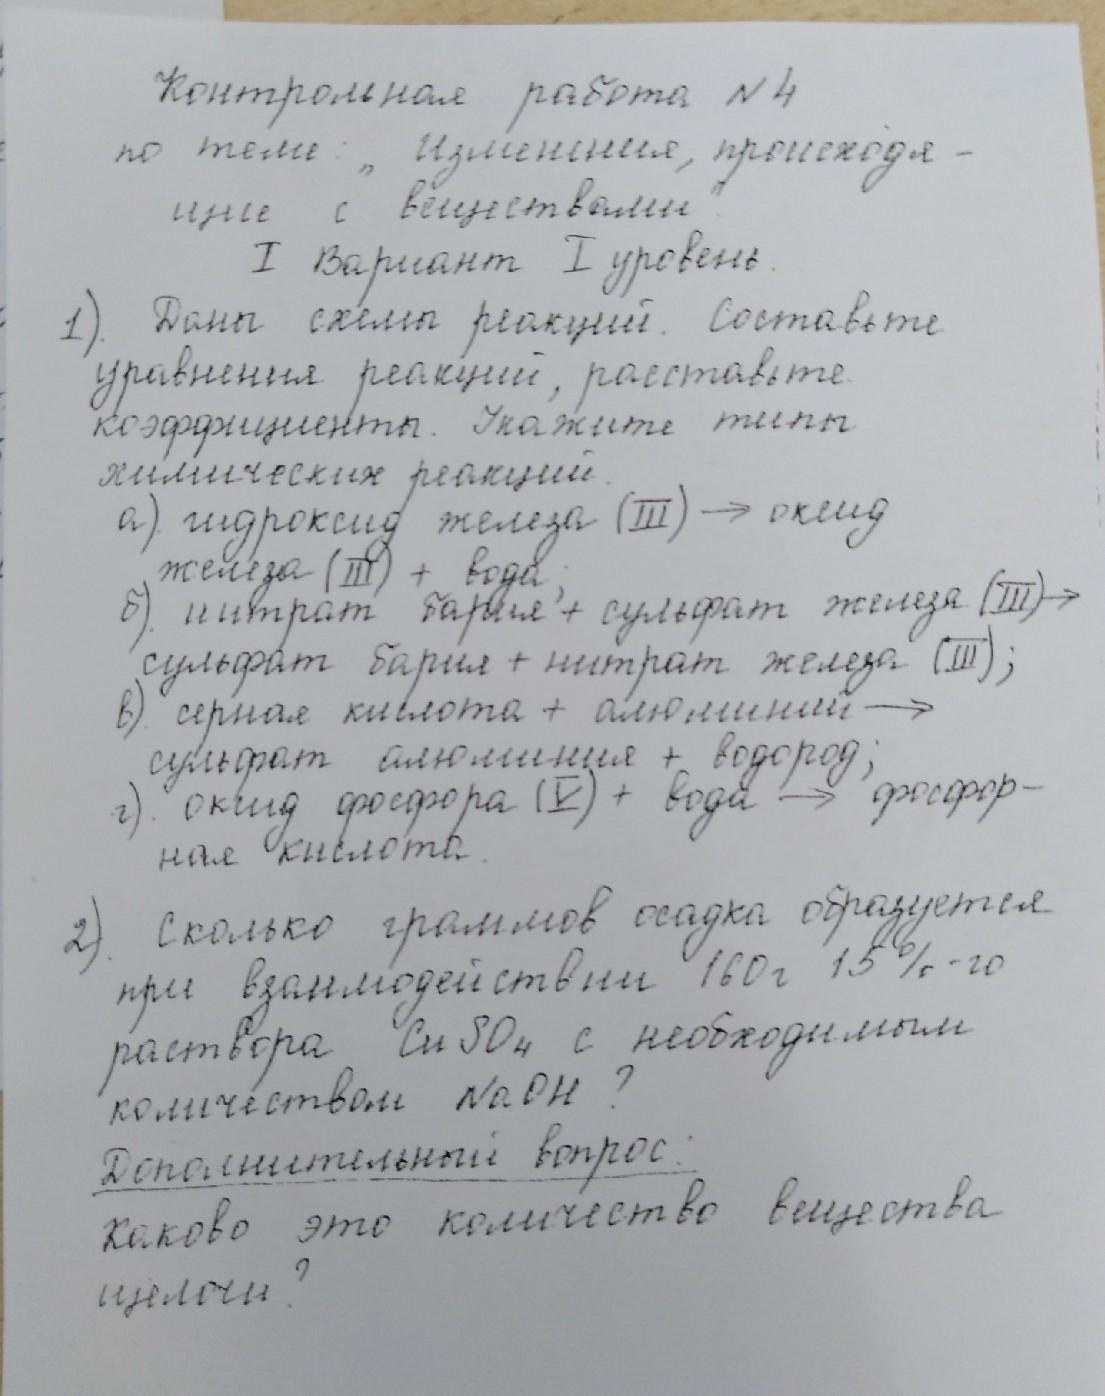 Контрольная работа N 4
по теме: „Изменения, происходя-
щие с веществами".
I Вариант I уровень.
1). Даны схемы реакций. Составьте
уравнения реакций, расставьте
коэффициенты. Укажите типы
химических реакций.
а). гидроксид железа (III) → оксид
железа (III) + вода;
б). нитрат бария + сульфат железа (III) →
сульфат бария + нитрат железа (III);
в). серная кислота + алюминий →
сульфат алюминия + водород;
г). оксид фосфора (V) + вода → фосфор-
ная кислота.
2). Сколько граммов осадка образуется
при взаимодействии 160г 15%-го
раствора CuSO4 с необходимым
количеством NaOH?
Дополнительный вопрос:
Каково это количество вещества
щелочи?